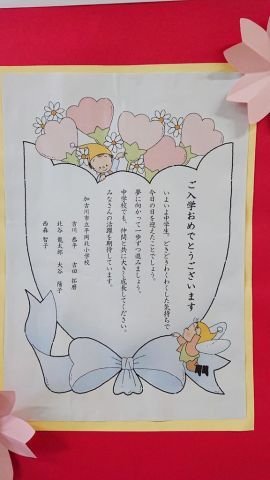 ご入学おめでとうございます
いよいよ中学生。どきどきわくわくした気持ちで
今日の日を迎えたことでしょう。
夢に向かって一歩ずつ進みましょう。
中学校でも、仲間と共に大きく成長してください。
みなさんの活躍を期待しています。
加古川市立平岡北小学校
吉川 恭平 吉田 拓磨
北谷 龍太郎 大谷 陽子
西森 智子